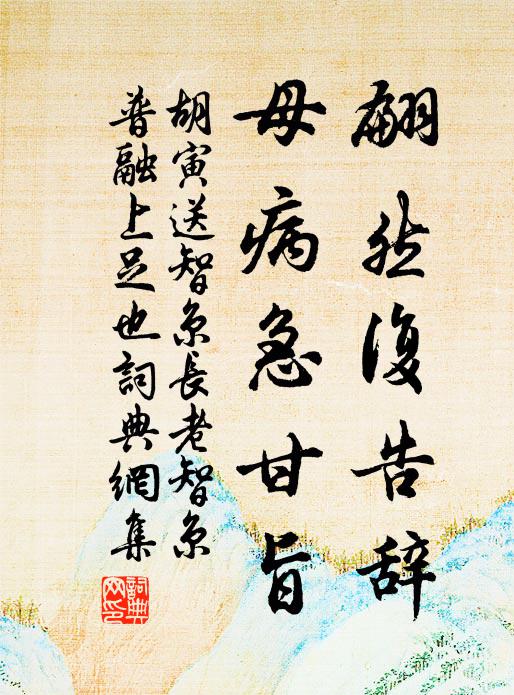 翩然復告辞
母病急甘旨
胡寅送智京長老智京
普融上足也詞典網集
詞典網印